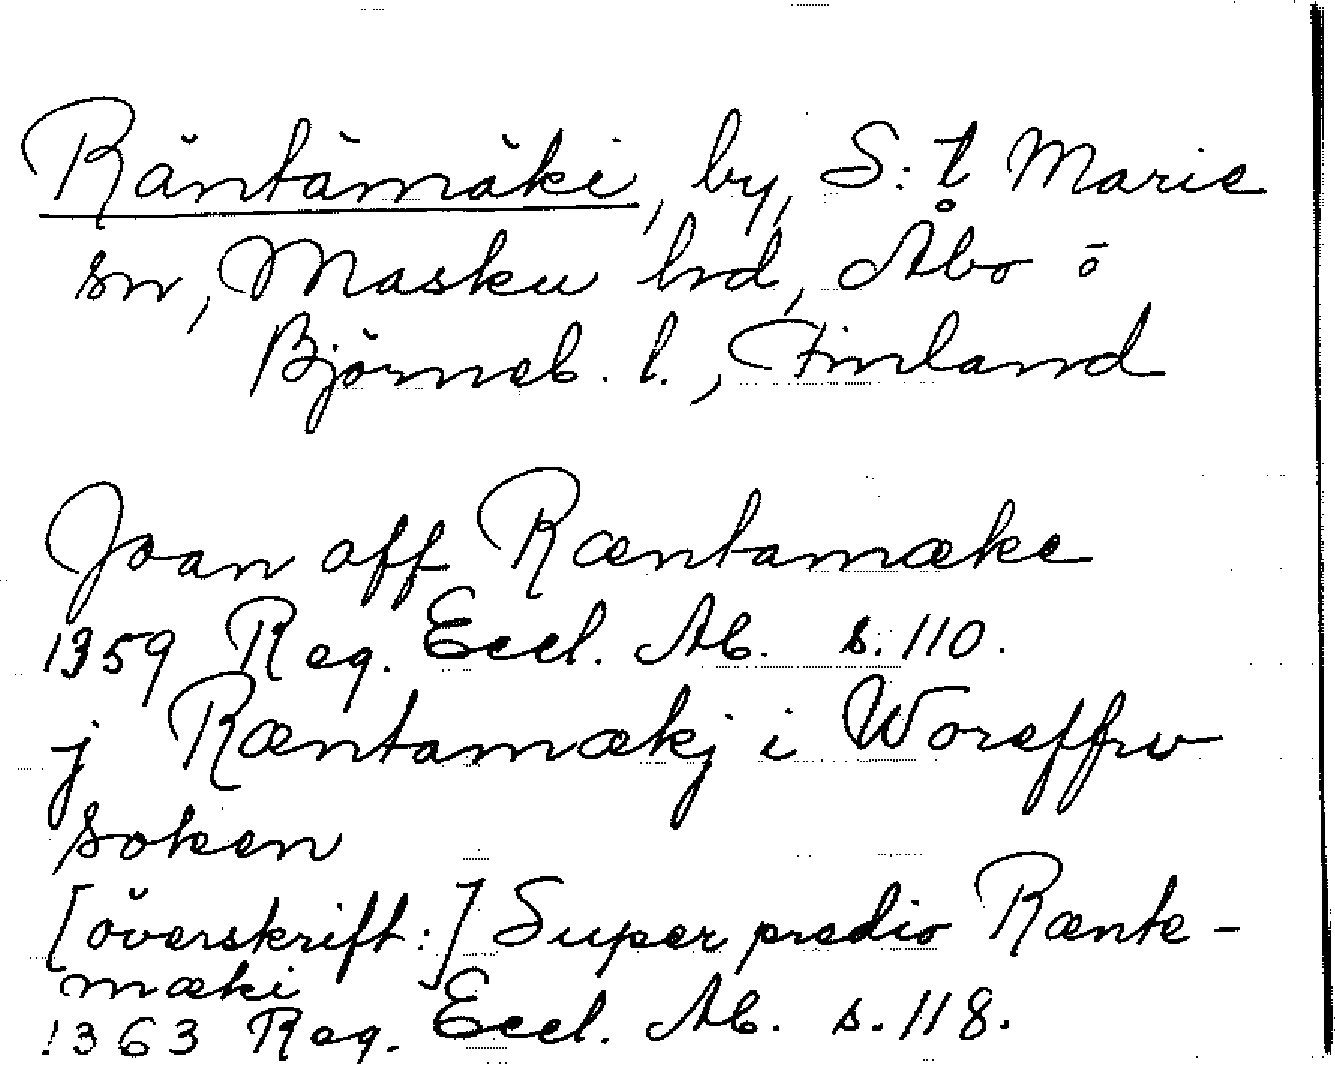 Räntämäki, by, S:t Marie
sn, Masku hd, Åbo o
Björneb. l., Finland
Joan aff Ræntamæke
1359 Reg. Eccl. Ab. s. 110.
j Ræntamækj i Woreffrw
soken
[överskrift:] Super predio Rænte-
mæki
1363 Reg. Eccl. Ab. s. 118.